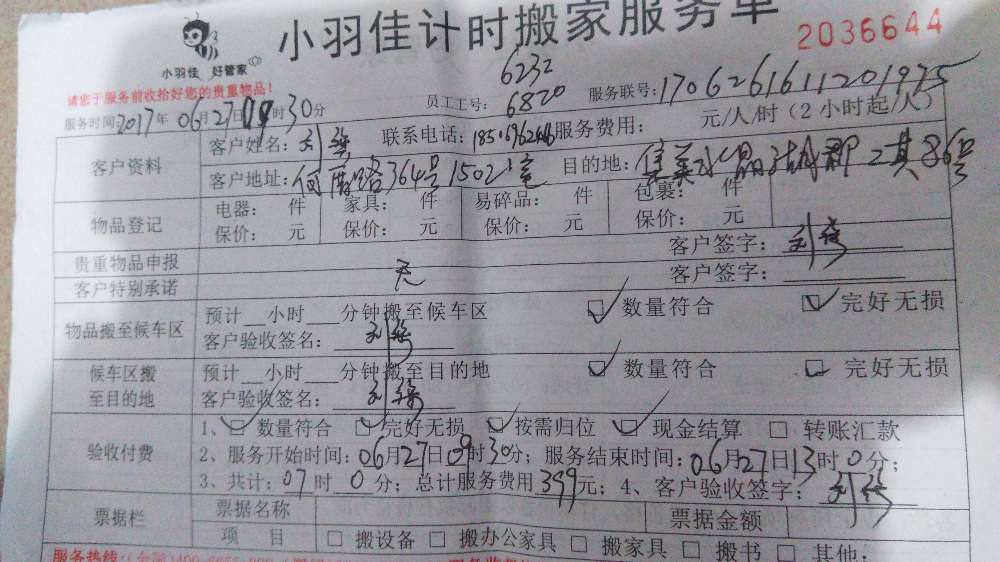 小羽佳计时搬家服务单
2036644
小羽佳 好管家
请您于服务前收拾好您的贵重物品!
员工工号: 6232 6820 服务联号: 1706261611201975
服务时间2017年06月27日 时30分
客户资料 客户姓名: 联系电话: 服务费用: 元/人/时(2小时起/人)
客户地址: 何厝路364号1502室 目的地: 集美水晶湖郡二期86号
物品登记 电器: 件 家具: 件 易碎品: 件 包裹: 件
保价: 元 保价: 元 保价: 元 保价: 元
贵重物品申报 客户签字:
客户特别承诺 无 客户签字:
物品搬至候车区 预计__小时___分钟搬至候车区 数量符合 完好无损
客户验收签名:
候车区搬至目的地 预计__小时___分钟搬至目的地 数量符合 完好无损
客户验收签名:
验收付费 1、 数量符合 完好无损 按需归位 现金结算 转账汇款
2、服务开始时间:06月27日09时30分; 服务结束时间:06月27日13时0分;
3、共计:07时0分; 总计服务费用399元; 4、客户验收签字:
票据栏 票据名称 票据金额
项 目 搬设备 搬办公家具 搬家具 搬书 其他:
服务热线: